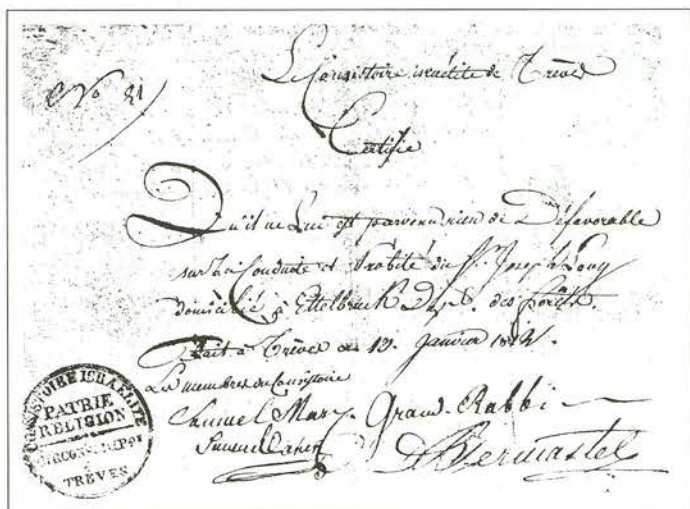 No 31
Le Consistoire israélite de Trèves
Certifie
Qu'il ne Lui est parvenu rien de Défavorable
sur La Conduite et Probité du Sr. Joseph Levy
domicilié à Ettelbruck Dép. des forêts.
Fait à Trèves ce 13. Janvier 1812.
Les membres du Consistoire
Samuel Marx Grand-Rabbi
Samuel Cahen
CONSISTOIRE ISRAELITE
PATRIE
RELIGION
TRÈVES